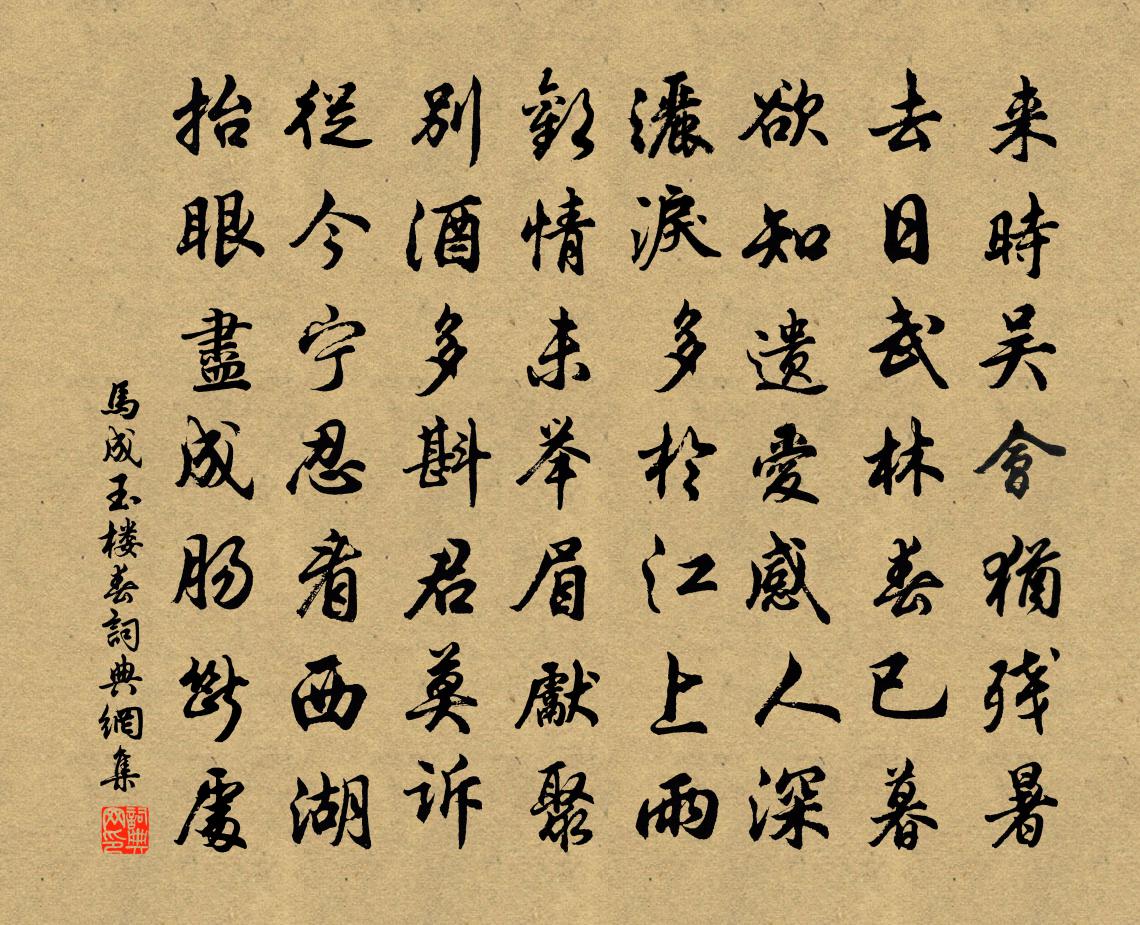 来時吴會猶残暑
去日武林春已暮
欲知遗愛感人深
灑淚多於江上雨
歡情未举眉獻聚
别酒多斟君莫诉
從今宁忍看西湖
抬眼盡成肠断處
馬成玉楼春詞典網集
詞典网印